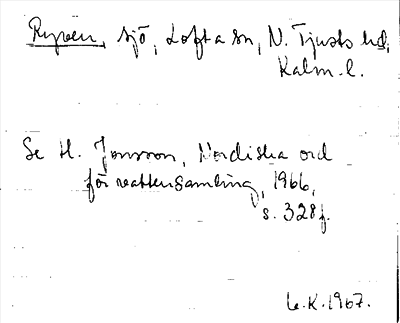 Ryven, sjö, Lofta sn, N. Tjusts hd,
Kalm. l.
Se H. Jonsson, Nordiska ord
för vattensamling, 1966,
s. 328f.
L.K. 1967.